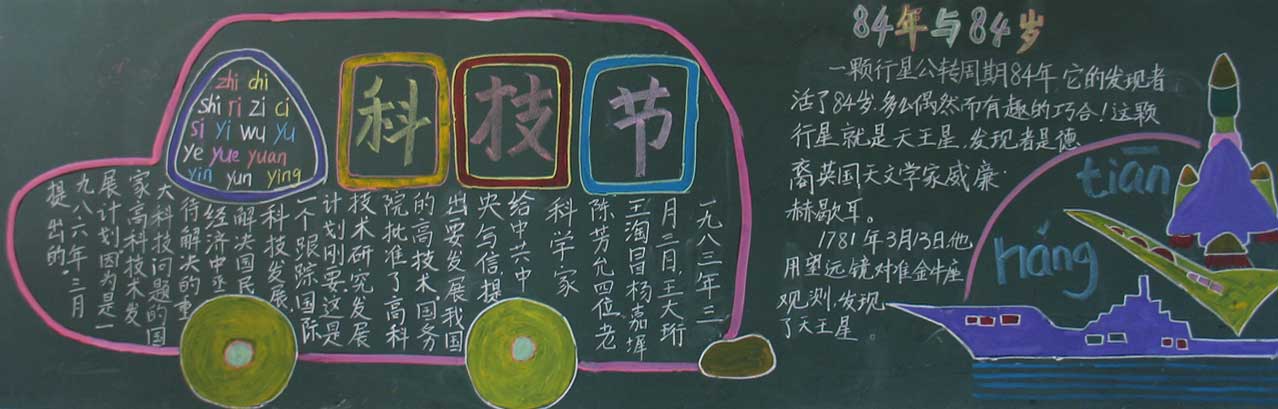 zhi chi
shi ri zi ci
si yi wu yu
ye yue yuan
yin yun ying
科技节
一九八三年三
月二日,王大珩
王淘冒杨嘉墀
陈芳允四位老
科学家
给中共中
央与信,提
出要发展我国
的高技术,国务
院批准了高科
技术研究发展
计划刚要,这是
一个跟踪国际
科技发展,
解决国民
经济中亟
待解决的重
大科技问题的国
家高科技术发
展计划因为是一
九八六年三月
提出的。
84年与84岁
一颗行星公转周期84年,它的发现者
活了84岁,多么偶然而有趣的巧合!这颗
行星就是天王星,发现者是德
裔英国天文学家威廉·
赫歇耳。
1781年3月13日他
用望远镜对准金牛座
观测,发现
了天王星。
tiān
háng